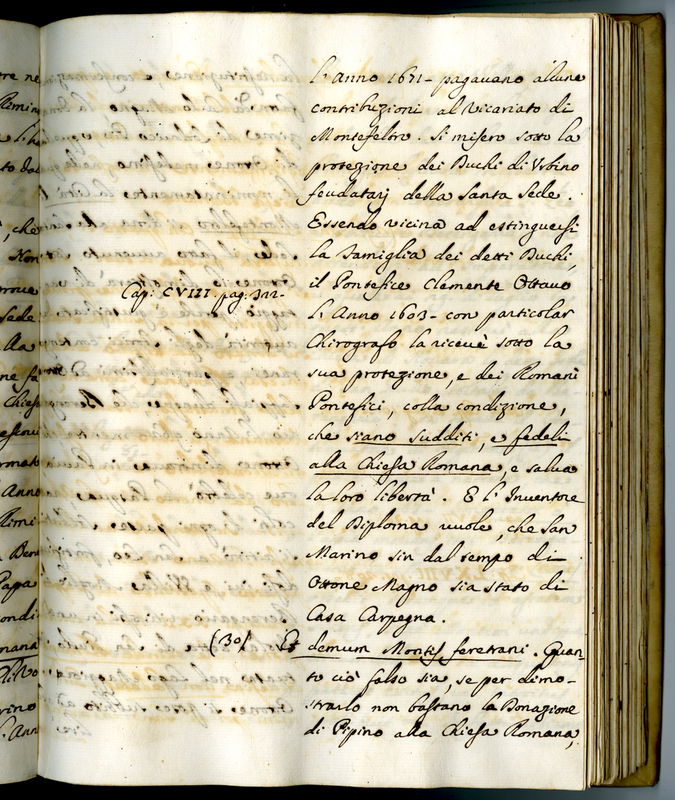 l'Anno 1671 - pagavano alcune
contribuzioni al Vicariato di
Montefeltro. Si misero sotto la
protezione dei Duchi di Vrbino
feudatarj della Santa Sede.
Essendo vicina ad estinguersi
la Famiglia dei detti Duchi,
il Pontefice Clemente Ottavo
Cap: CVIII. pag: 322-
l'Anno 1603 - con particolar
Chirografo la ricevè sotto la
sua protezione, e dei Romani
Pontefici, colla condizione,
che siano sudditi, e fedeli
alla Chiesa Romana, e salva
la loro libertà. E l'Inventore
del Diploma vuole, che San
Marino sin dal tempo di
Ottone Magno sia stato di
Casa Carpegna.
(30) Et demum Montis feretrani. Quan-
to ciò falso sia, se per dimo-
strarlo non bastano la Donazione
di Pipino alla Chiesa Romana,